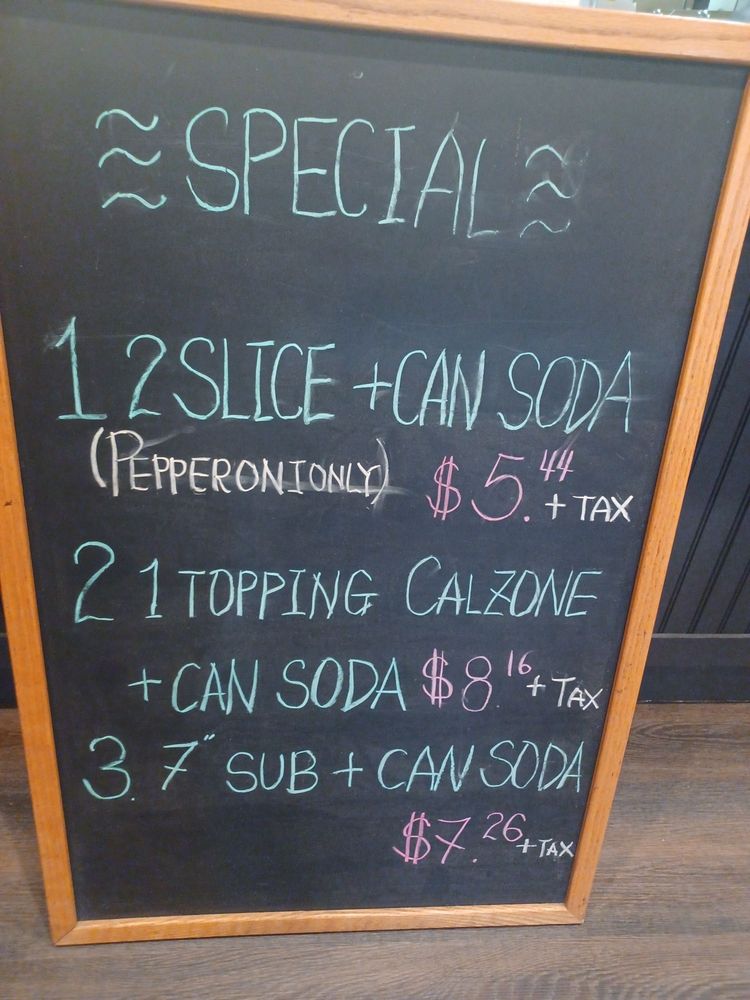 ≈ SPECIAL ≈
1 2 SLICE + CAN SODA
(PEPPERONI ONLY) $5.44 + TAX
2 1 TOPPING CALZONE
+ CAN SODA $8.16 + TAX
3. 7" SUB + CAN SODA
$7.26 + TAX